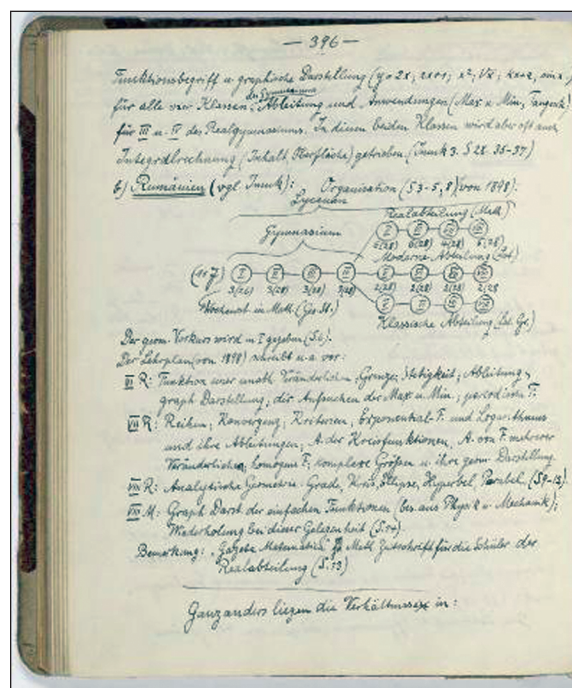 — 396 —
Funktionsbegriff u. graphische Darstellung (y = 2x, 2x+1, x², √x,
des Gymnasiums
für alle vier Klassen; Ableitung und Anwendungen (Max u. Min, Tangente)
für III u. IV des Realgymnasiums. In diesen beiden Klassen wird aber oft auch
Integralrechnung (Inhalt, Oberfläche) getrieben. (Imuk 3. S 28. 35-37)
b) Rumänien (vgl. Imuk): Organisation (S 3-5, 8) von 1898:
Lyceum
Realabteilung (Math)
Gymnasium
Moderne Abteilung (Lat.)
(1+7)
I II III IV
3(26) 3(28) 3(28) 3(28)
2(28) 2(28) 2(28) 2(28)
Wochenst. in Math. (Ges. St.)
Klassische Abteilung (Lat. Gr.)
Der geom. Vorkurs wird in I gegeben (S 6).
Der Lehrplan (von 1898) schreibt u. a. vor:
VI R: Funktion einer unabh. Veränderlichen, Grenze, Stetigkeit, Ableitung,
graph. Darstellung, der Aufsuchen der Max u. Min, period. F.
VII R: Reihen, Konvergenz, Kriterien, Exponential-F. und Logarithmus
und ihre Ableitungen, A. der Kreisfunktionen, A. von F. mehrerer
Veränderlichen, homogene F, komplexe Größen u. ihre geom. Darstellung.
VIII R: Analytische Geometrie: Grade, Kreis, Ellipse, Hyperbel, Parabel. (S 9-13).
VIII M: Graph. Darst. der einfachen Funktionen (bes. aus Physik u. Mechanik);
Wiederholung bei dieser Gelegenheit (S. 14).
Bemerkung: „Gazeta Matematică" Math. Zeitschrift für die Schüler der
Realabteilung (S. 13)
Ganz anders liegen die Verhältnisse in: